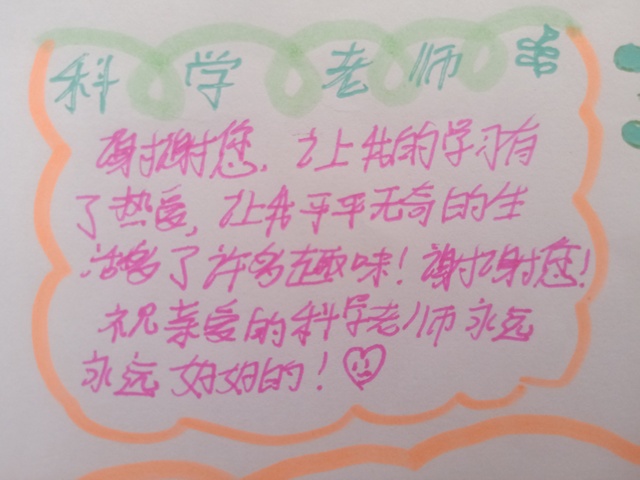 科学老师
谢谢您，让我的学习有
了热爱，让我平平无奇的生
活多了许多趣味！谢谢您！
祝亲爱的科学老师永远
永远好好的！